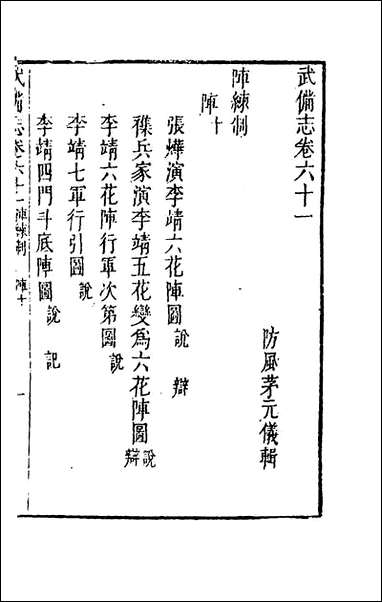 武備志卷六十一
防風茅元儀輯
陣練制
陣十
張燁演李靖六花陣圖 說 辯
襍兵家演李靖五花變爲六花陣圖 說 辯
李靖六花陣行軍次第圖 說
李靖七軍行引圖 說
李靖四門斗底陣圖 說 記
武備志卷六十一 陣練制 陣十 一